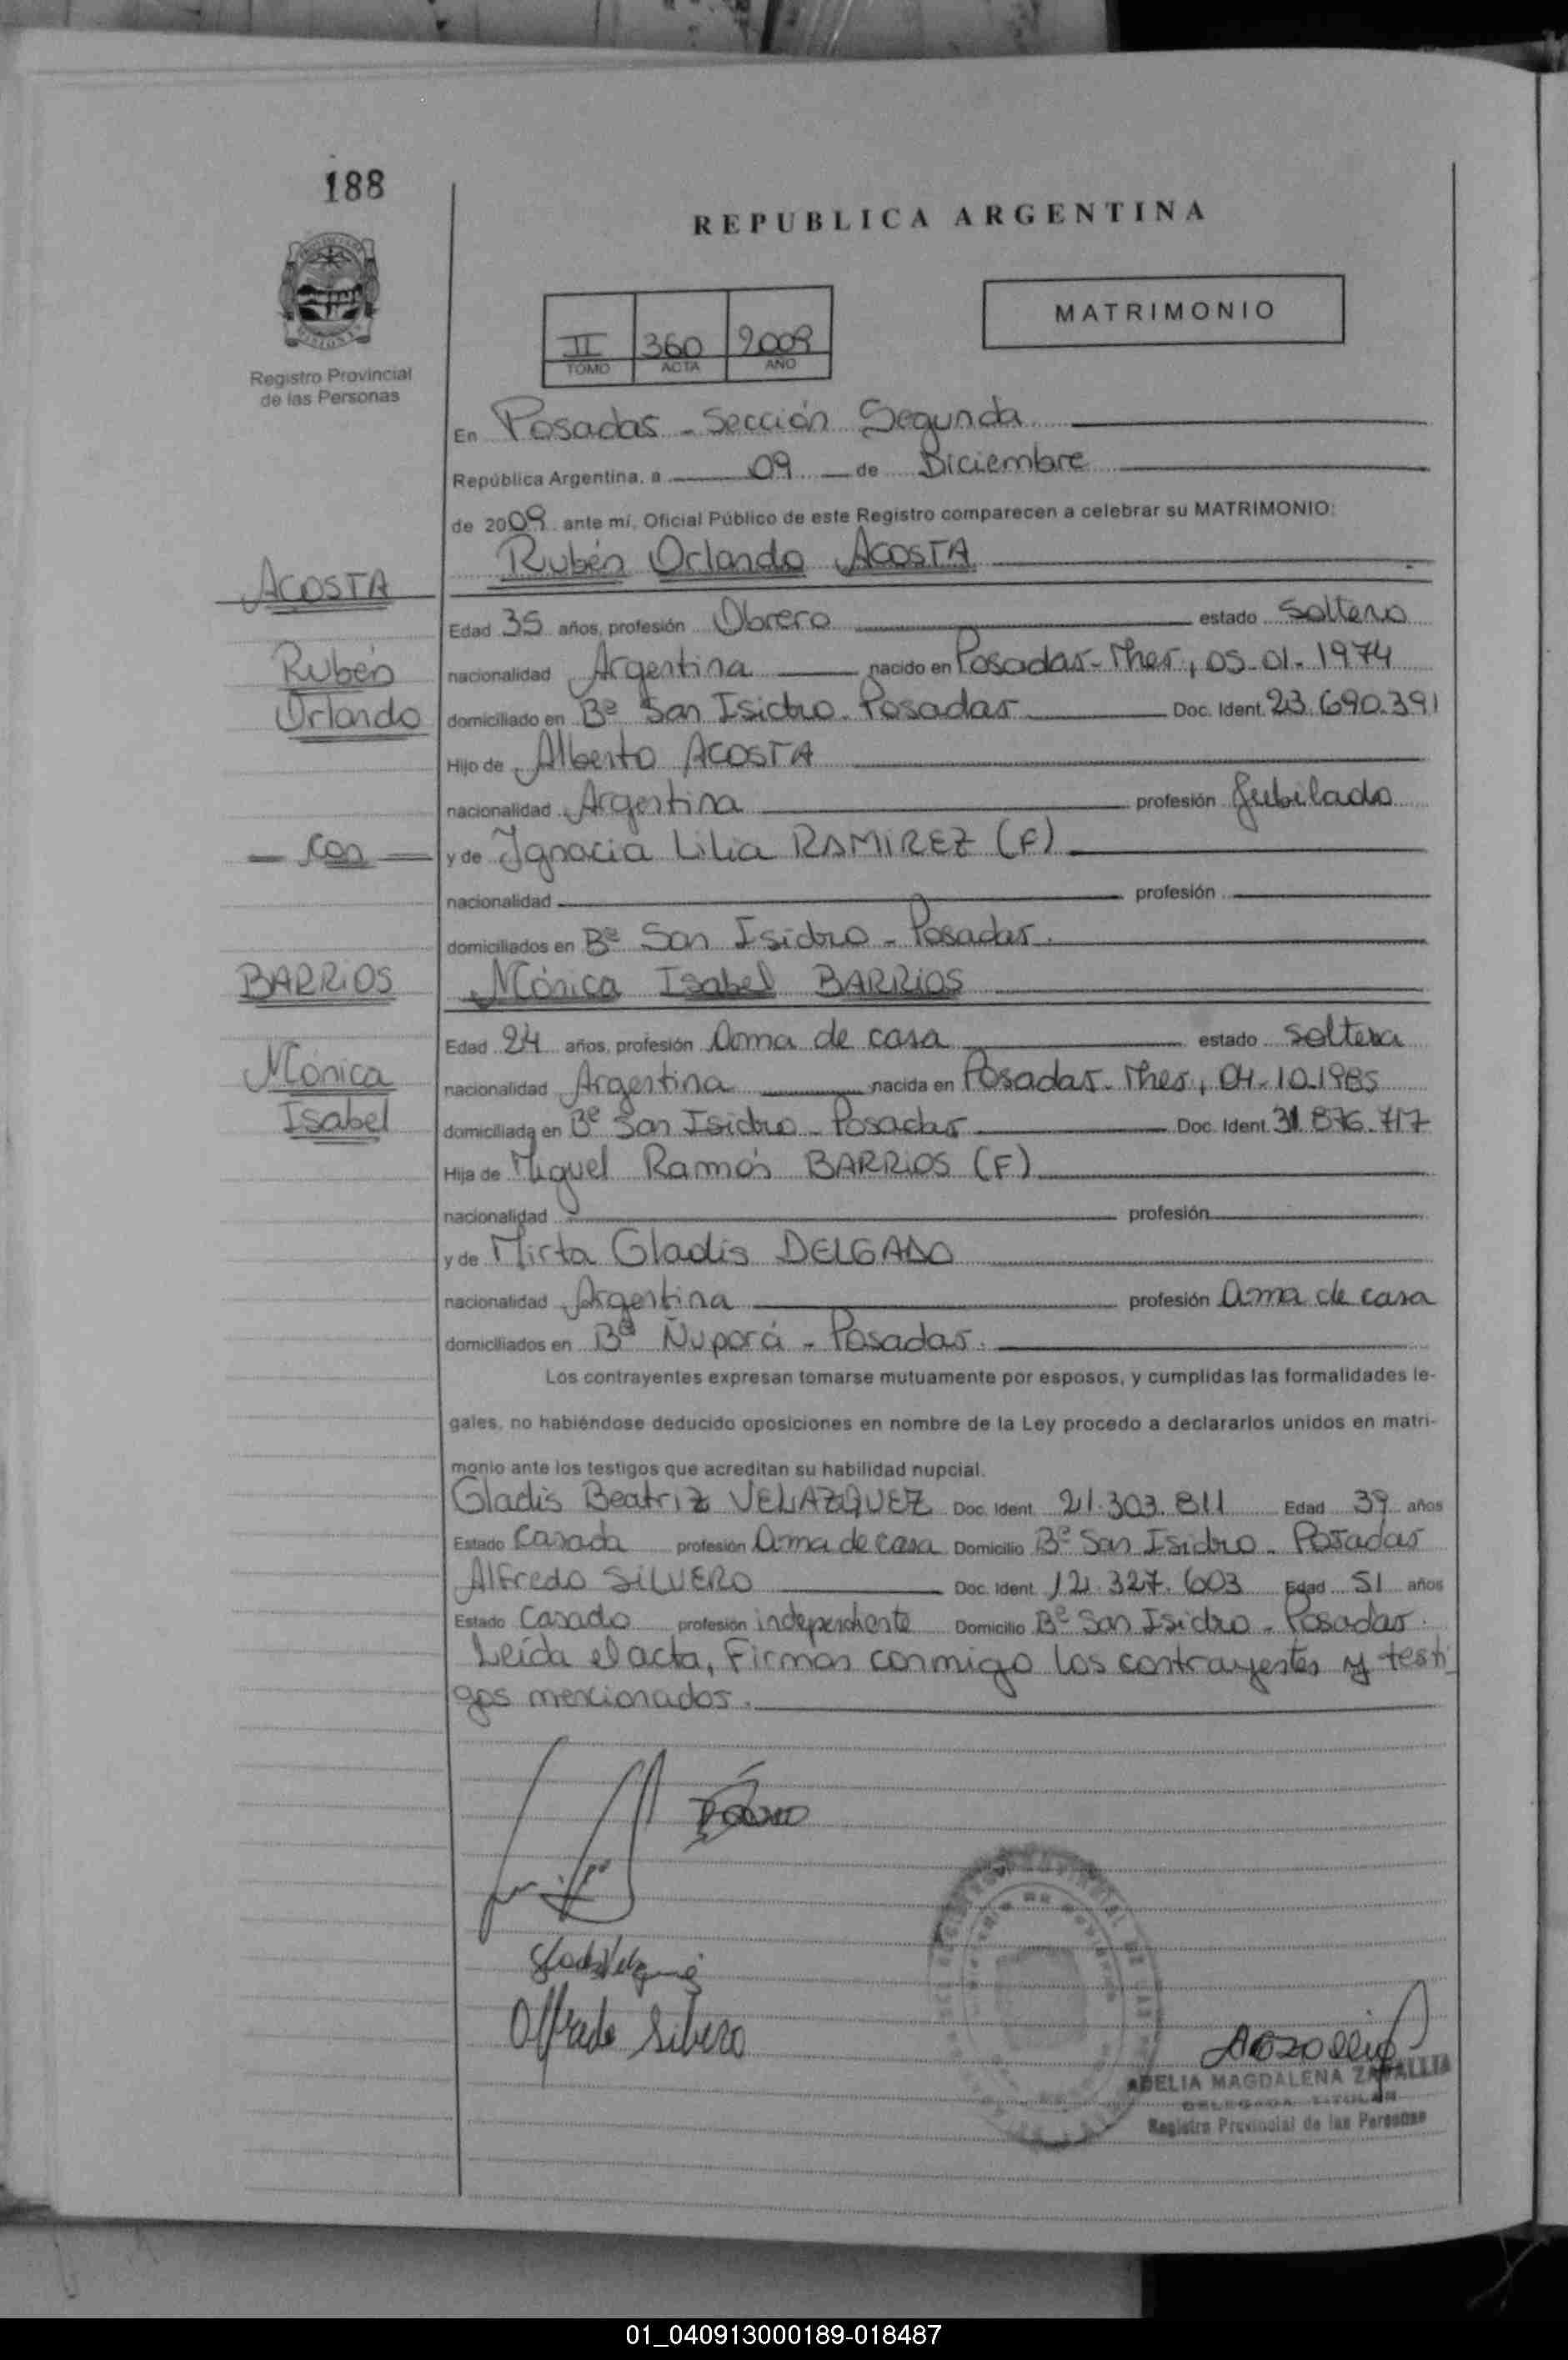 188
REPUBLICA ARGENTINA
MATRIMONIO
II 360 2009
TOMO ACTA AÑO
Registro Provincial
de las Personas
En Posadas - Sección Segunda
República Argentina, a 09 de Diciembre
de 2009 ante mí, Oficial Público de este Registro comparecen a celebrar su MATRIMONIO:
Rubén Orlando ACOSTA
ACOSTA
Edad 35 años, profesión Obrero estado soltero
Rubén
nacionalidad Argentina nacido en Posadas-Mnes, 05-01-1974
Orlando
domiciliado en Bº San Isidro - Posadas Doc. Ident. 23.690.391
Hijo de Alberto ACOSTA
nacionalidad Argentina profesión Jubilado
- con -
y de Ignacia Lilia RAMIREZ (F)
nacionalidad profesión
domiciliados en Bº San Isidro - Posadas.
BARRIOS
Mónica Isabel BARRIOS
Edad 24 años, profesión Ama de casa estado soltera
Mónica
nacionalidad Argentina nacida en Posadas-Mnes, 04-10-1985
Isabel
domiciliada en Bº San Isidro - Posadas Doc. Ident. 31.876.717
Hija de Miguel Ramón BARRIOS (F)
nacionalidad profesión
y de Mirta Gladis DELGADO
nacionalidad Argentina profesión Ama de casa
domiciliados en Bº Ñuporá - Posadas.
Los contrayentes expresan tomarse mutuamente por esposos, y cumplidas las formalidades le-
gales, no habiéndose deducido oposiciones en nombre de la Ley procedo a declararlos unidos en matri-
monio ante los testigos que acreditan su habilidad nupcial.
Gladis Beatriz VELAZQUEZ Doc. Ident. 21.303.811 Edad 39 años
Estado Casada profesión Ama de casa Domicilio Bº San Isidro - Posadas
Alfredo SILVERO Doc. Ident. 12.327.603 Edad 51 años
Estado Casado profesión independiente Domicilio Bº San Isidro - Posadas.
Leída el acta, Firman conmigo los contrayentes y testi-
gos mencionados.
Alfredo Silvero
ADELIA MAGDALENA ZAPALLIA
DELEGADA TITULAR
Registro Provincial de las Personas
01_040913000189-018487